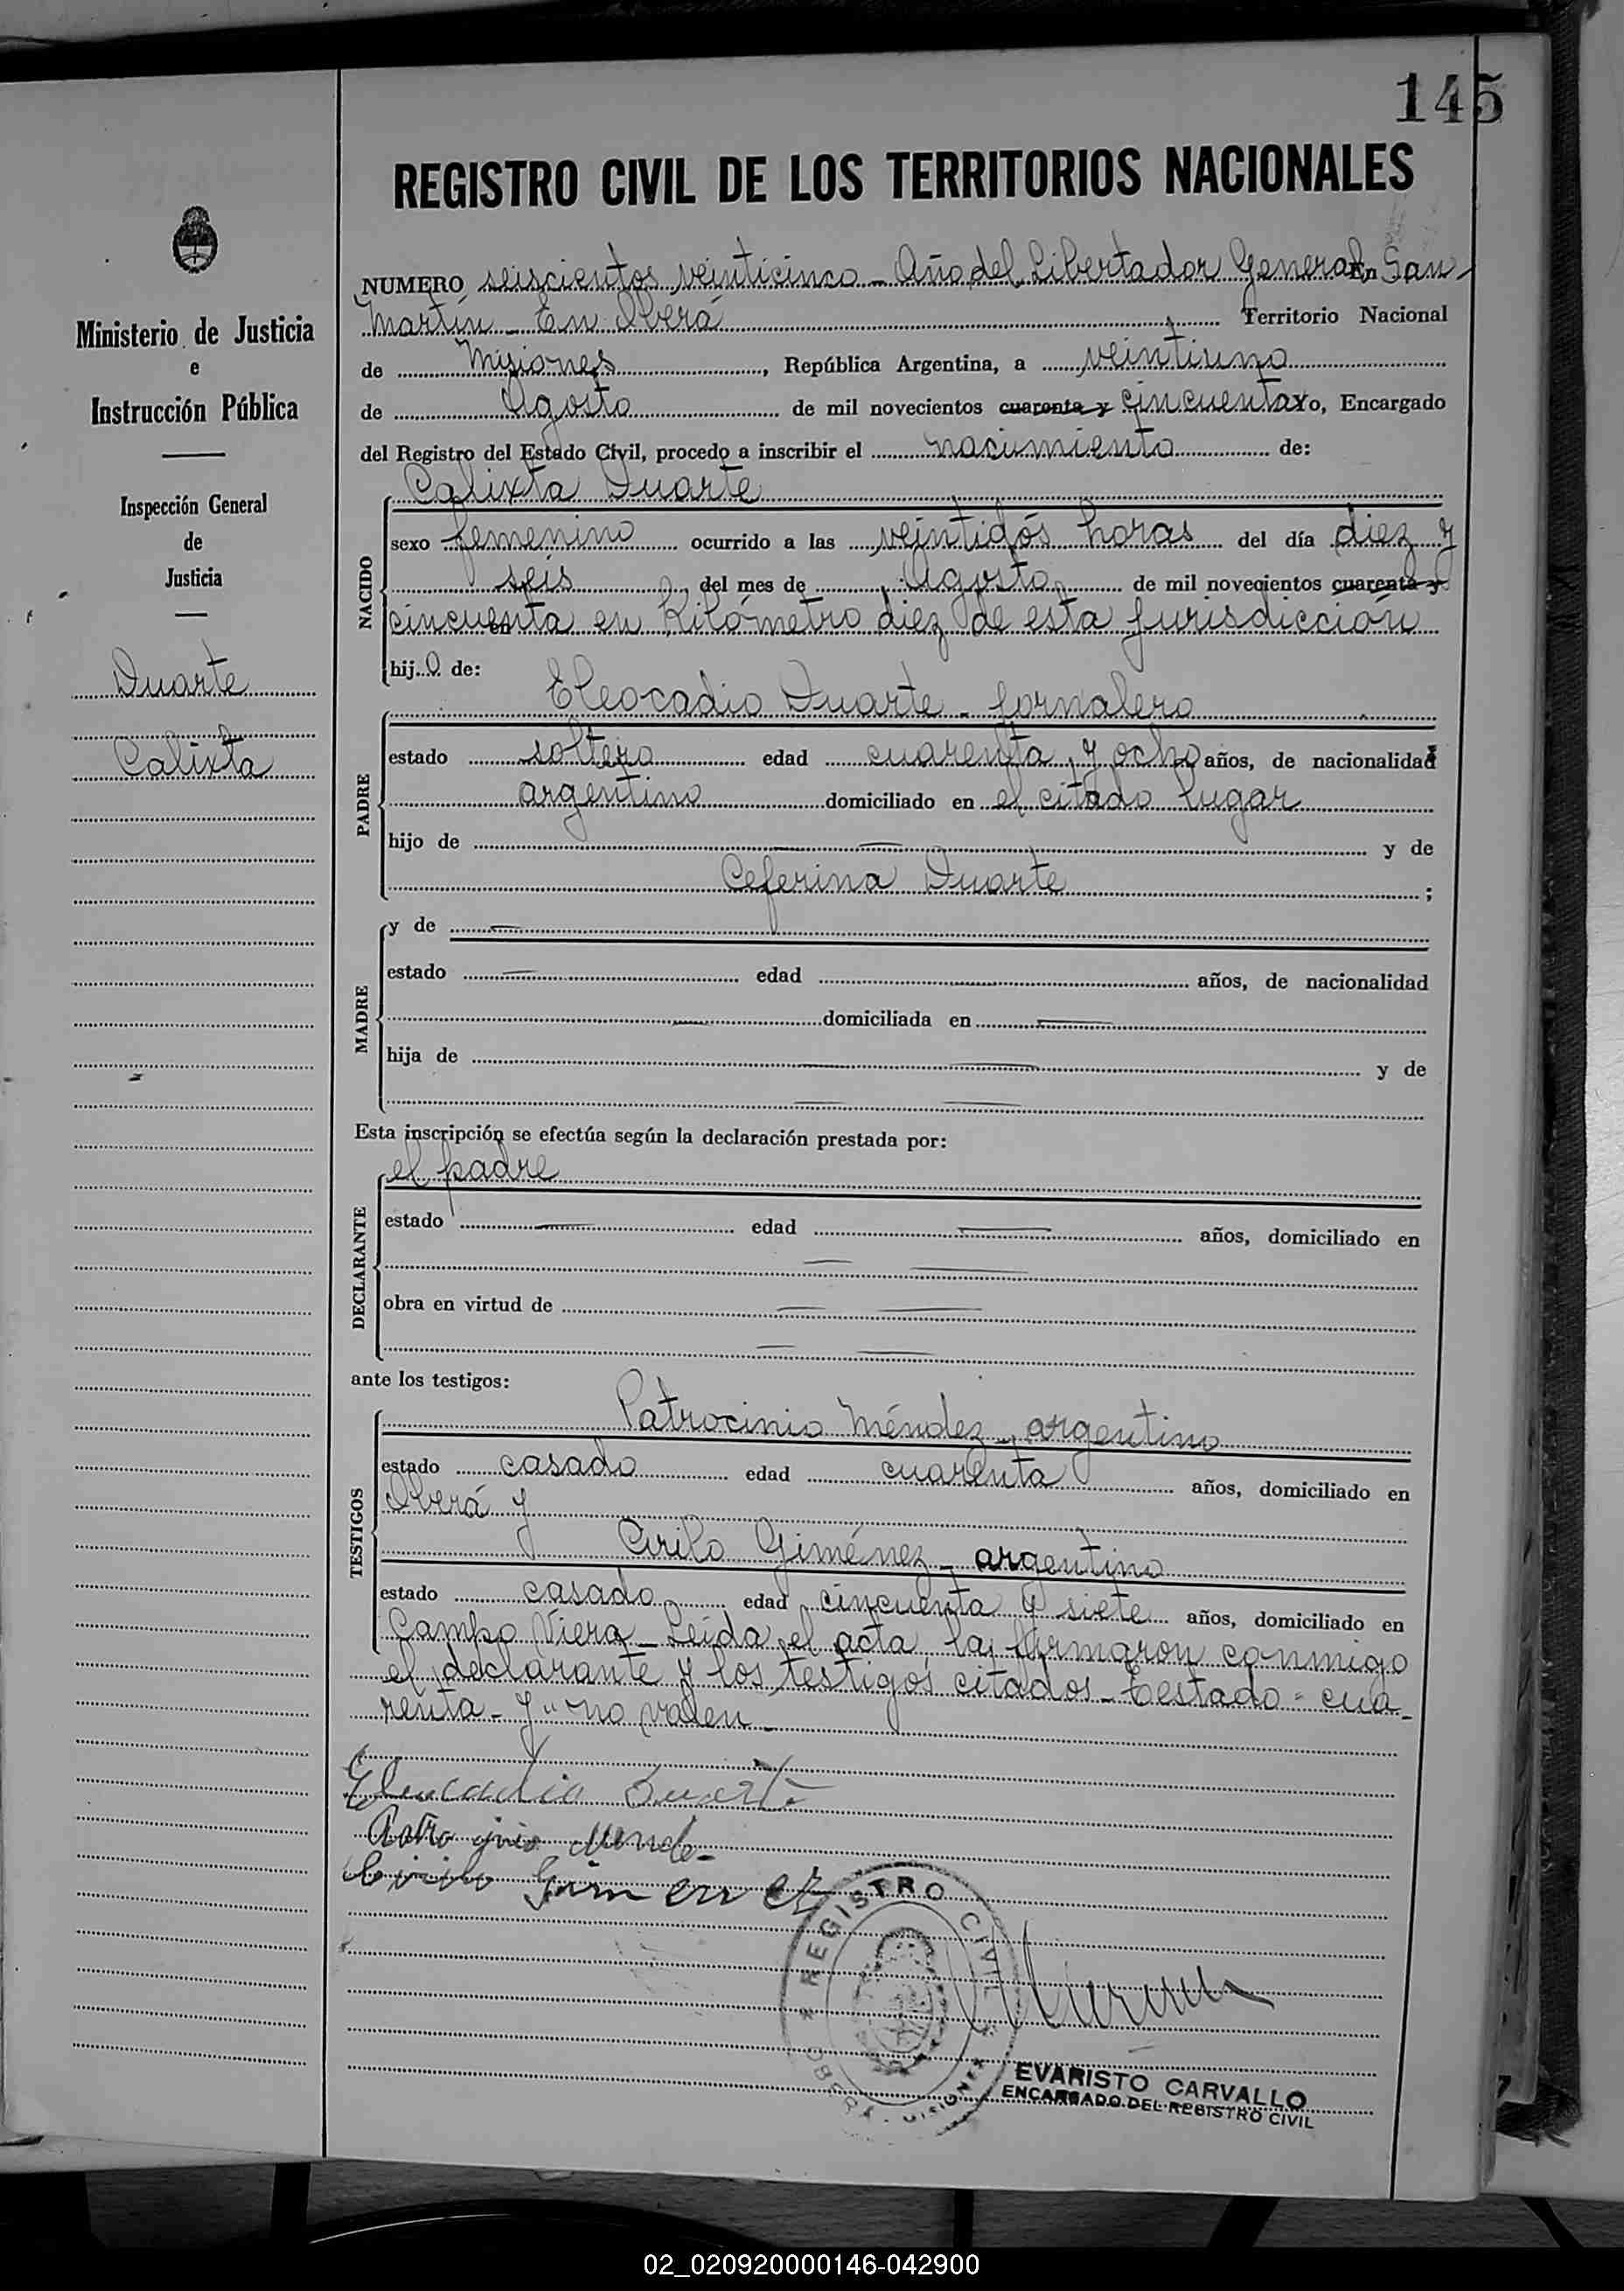 145
REGISTRO CIVIL DE LOS TERRITORIOS NACIONALES
Ministerio de Justicia
e
Instrucción Pública
Inspección General
de
Justicia
Duarte
Calixta
NUMERO seiscientos veinticinco - Año del Libertador General En San
Martín - En Oberá Territorio Nacional
de Misiones, República Argentina, a veintiuno
de Agosto de mil novecientos cuarenta y cincuenta Yo, Encargado
del Registro del Estado Civil, procedo a inscribir el nacimiento de:
NACIDO
Calixta Duarte
sexo femenino ocurrido a las veintidós horas del día diez y
seis del mes de Agosto de mil novecientos cuarenta y
cincuenta en Kilómetro diez de esta jurisdicción
hija de:
PADRE
Eleocadio Duarte - jornalero
estado soltero edad cuarenta y ocho años, de nacionalidad
argentino domiciliado en el citado lugar
hijo de — — y de
Ceferina Duarte ;
MADRE
y de —
estado — edad — años, de nacionalidad
— domiciliada en —
hija de — — y de
— —
Esta inscripción se efectúa según la declaración prestada por:
DECLARANTE
el padre
estado — edad — años, domiciliado en
— —
obra en virtud de — —
— —
ante los testigos:
TESTIGOS
Patrocinio Méndez - argentino
estado casado edad cuarenta años, domiciliado en
Oberá y
Cirilo Giménez - argentino
estado casado edad cincuenta y siete años, domiciliado en
Campo Viera - Leída el acta, la firmaron conmigo
el declarante y los testigos citados - Testado = cua-
renta - y" no valen -
Eleocadio Duarte
Patrocinio Mende-
Cirilo Gimenez
REGISTRO CIVIL
OBERÁ - MISIONES
EVARISTO CARVALLO
ENCARGADO DEL REGISTRO CIVIL
02_020920000146-042900